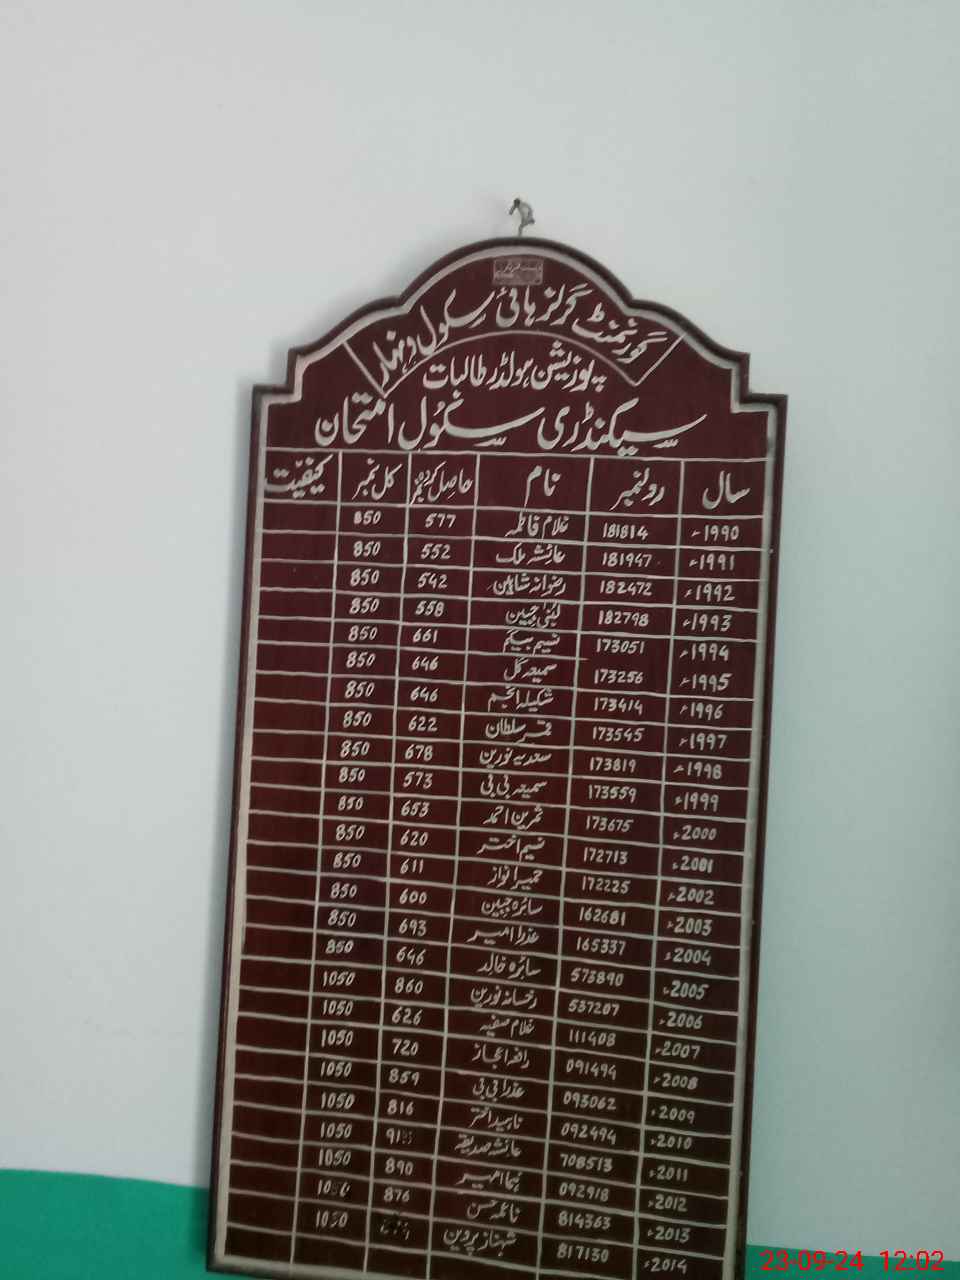 گورنمنٹ گرلز ہائی سکول ونہار
پوزیشن ہولڈر طالبات
سیکنڈری سکول امتحان
سال رولنمبر نام حاصل کردہ نمبر کل نمبر کیفیّت
1990ء 181814 غلام فاطمہ 577 850
1991ء 181947 عائشہ ملک 552 850
1992ء 182472 رضوانہ شاہین 542 850
1993ء 182798 لبنیٰ جبین 558 850
1994ء 173051 نسیم بیگم 661 850
1995ء 173256 سمیعہ گل 646 850
1996ء 173414 شکیلہ انجم 646 850
1997ء 173545 قمر سلطان 622 850
1998ء 173819 سعدیہ نورین 678 850
1999ء 173559 سمیعہ بی بی 573 850
2000ء 173675 ثمرین احمد 653 850
2001ء 172713 نسیم اختر 620 850
2002ء 172225 حمیرا نواز 611 850
2003ء 162681 سائرہ جبین 600 850
2004ء 165337 عذرا امیر 693 850
2005ء 573890 سائرہ خالد 646 850
2006ء 537207 رخسانہ نورین 860 1050
2007ء 111408 غلام صفیہ 626 1050
2008ء 091494 رافعہ اعجاز 720 1050
2009ء 093062 عذرا بی بی 859 1050
2010ء 092494 ناہید اختر 816 1050
2011ء 708513 عائشہ صدیقہ 1050
2012ء 092918 ہما امیر 890 1050
2013ء 814363 نائمہ حسن 876 1050
2014ء 817130 شہناز پروین 1050
23-09-24 12:02